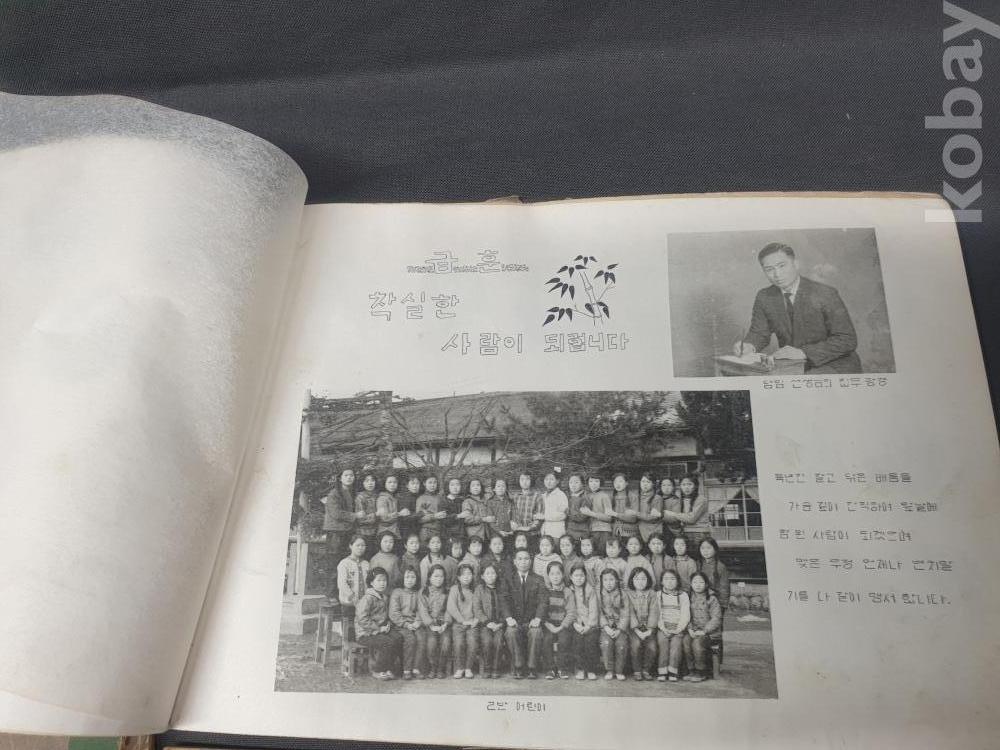 급훈
착실한
사람이 되렵니다
담임 선생님의 집무 광경
육년간 갈고 닦은 배움을
가슴 깊이 간직하여 앞날에
참된 사람이 되겠으며
맺은 우정 언제나 변치말
기를 다 같이 맹서 합니다.
근반 어린이
kobay